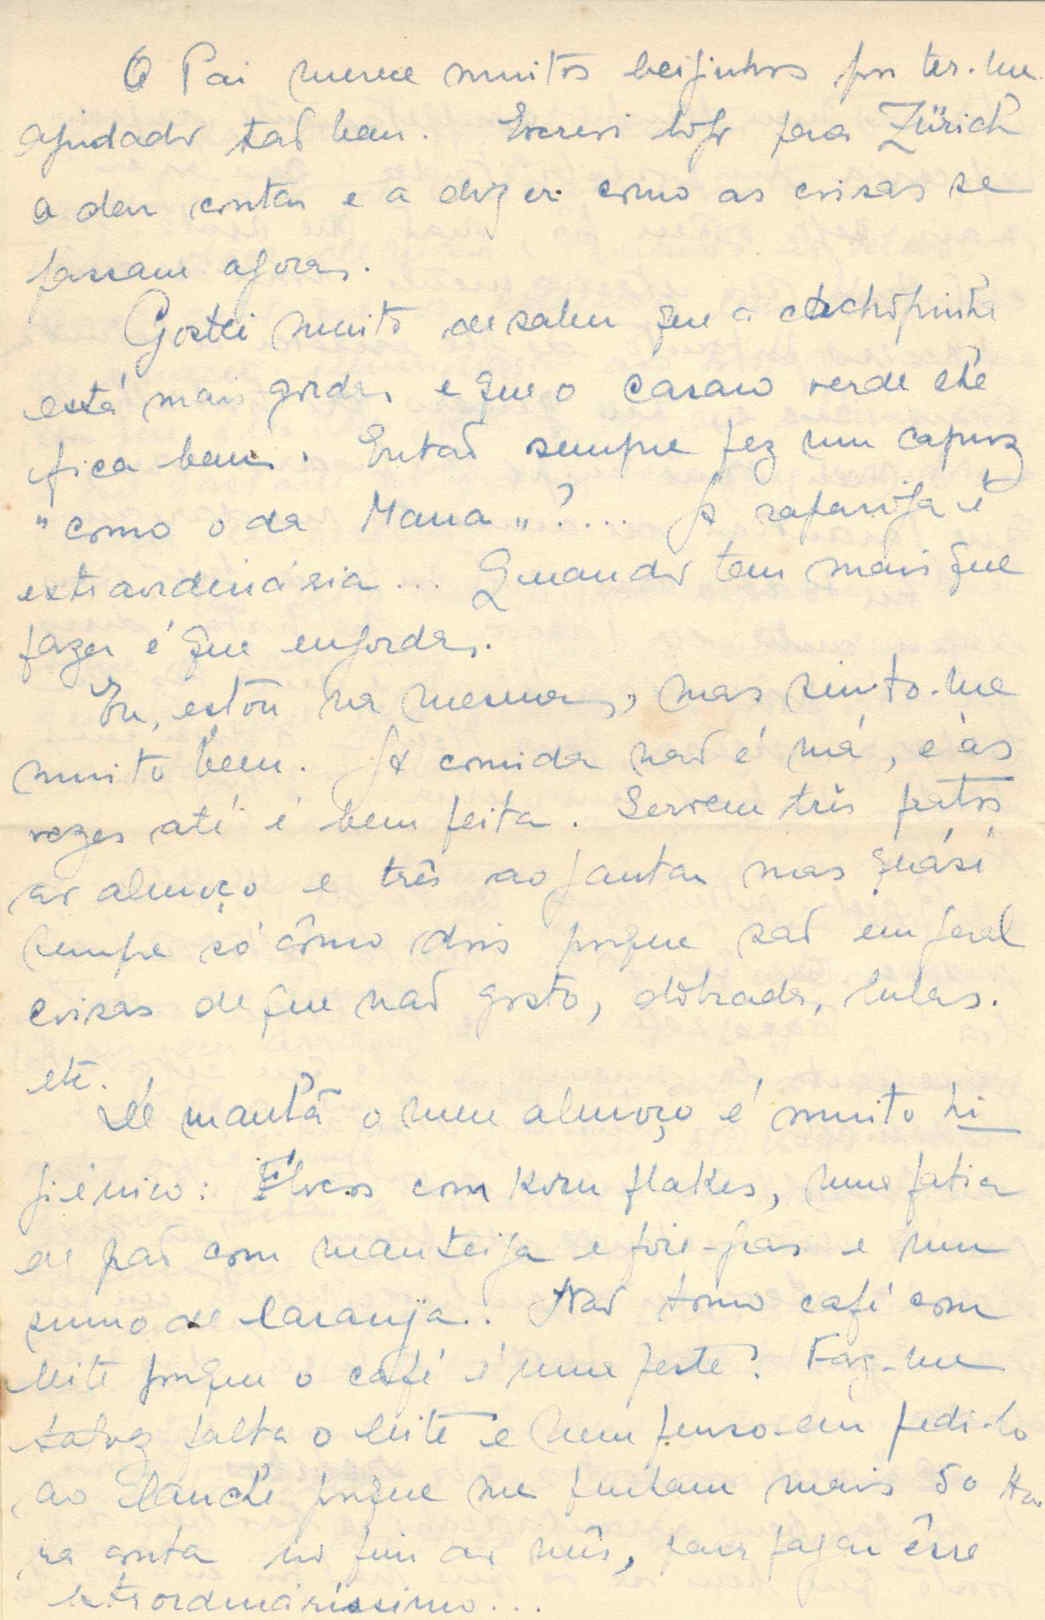 O Pai merece muitos beijinhos por ter-me
ajudado taõ bem. Escrevi hoje para Zürich
a dar contas e a dizer como as coisas se
passam agora.
Gostei muito de saber que a cachôpinha
está mais gorda, e que o casaco verde lhe
fica bem. Entaõ sempre fez um capuz
"como o da Mana"?... A rapariga é
extraordinária... Quando tem mais que
fazer é que engorda.
Eu, estou na mesma, mas sinto-me
muito bem. A comida naõ é má, e ás
vezes até é bem feita. Servem três pratos
ao almoço e três ao jantar mas quási
sempre só cômo dois porque saõ em geral
coisas de que naõ gosto, dobrada, lulas.
etc.
De manhã o meu almoço é muito hi
giénico: Flocos com Korn flakes, uma fatia
de paõ com manteiga e foie-gras e um
sumo de laranja. Naõ tomo café com
leite porque o café é uma peste! Faz-me
talvez falta o leite e nem penso em pedi-lo
ao lanche porque me puxam mais 50
na conta no fim do mês, para pagar êsse
extraordinaríssimo...